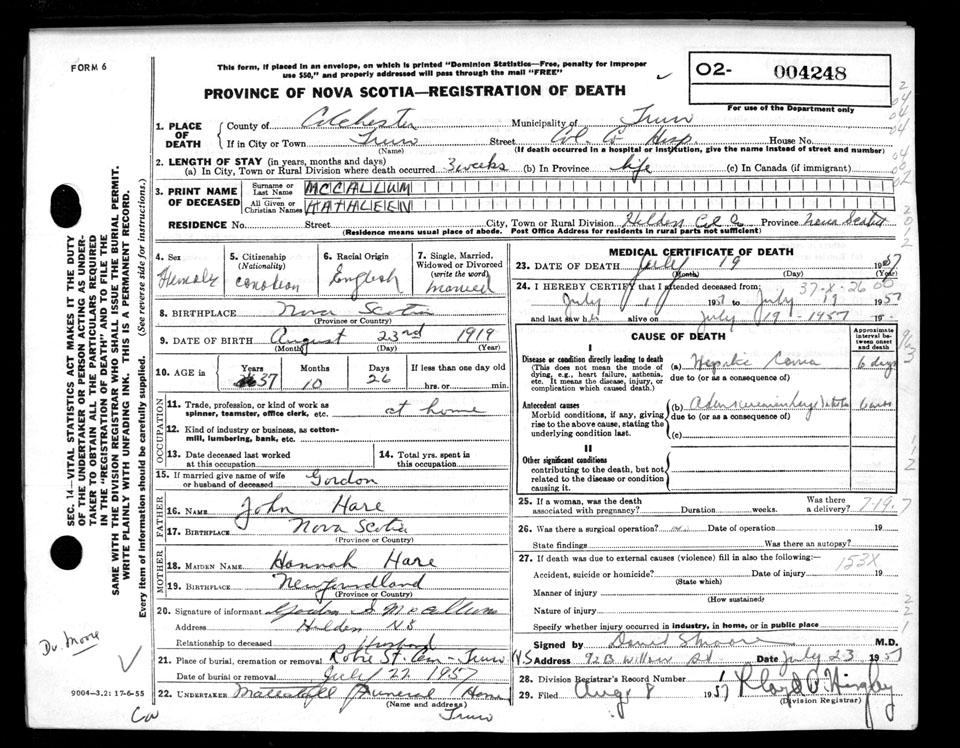 FORM 6
This form, if placed in an envelope, on which is printed "Dominion Statistics—Free, penalty for improper
use $50," and properly addressed will pass through the mail "FREE"
PROVINCE OF NOVA SCOTIA—REGISTRATION OF DEATH
O2- 004248
For use of the Department only
1. PLACE OF DEATH
County of Colchester Municipality of Truro
If in City or Town Truro Street Col. Co Hosp. House No.
(Name) (If death occurred in a hospital or institution, give the name instead of street and number)
2. LENGTH OF STAY (in years, months and days)
(a) In City, Town or Rural Division where death occurred 3 weeks (b) In Province life (c) In Canada (if immigrant)
3. PRINT NAME OF DECEASED
Surname or Last Name MCCALLUM
All Given or Christian Names KATHLEEN
RESIDENCE No. Street City, Town or Rural Division Hilden Col Co Province Nova Scotia
(Residence means usual place of abode. Post Office Address for residents in rural parts not sufficient)
4. Sex Female
5. Citizenship (Nationality) Canadian
6. Racial Origin English
7. Single, Married, Widowed or Divorced (write the word) married
8. BIRTHPLACE Nova Scotia
(Province or Country)
9. DATE OF BIRTH August 23rd 1919
(Month) (Day) (Year)
10. AGE in Years 37 Months 10 Days 26 If less than one day old hrs. or min.
OCCUPATION
11. Trade, profession, or kind of work as spinner, teamster, office clerk, etc. at home
12. Kind of industry or business, as cotton-mill, lumbering, bank, etc.
13. Date deceased last worked at this occupation
14. Total yrs. spent in this occupation
15. If married give name of wife or husband of deceased Gordon
FATHER
16. NAME John Hare
17. BIRTHPLACE Nova Scotia
(Province or Country)
MOTHER
18. MAIDEN NAME Hannah Hare
19. BIRTHPLACE Newfoundland
(Province or Country)
20. Signature of informant Gordon McCallum
Address Hilden N S
Relationship to deceased Husband
21. Place of burial, cremation or removal Robie St. Cem - Truro N.S
Date of burial or removal July 22 1957
22. UNDERTAKER Funeral Home
(Name and address) Truro
MEDICAL CERTIFICATE OF DEATH
23. DATE OF DEATH July 19 1957
(Month) (Day) (Year)
37-X-26
24. I HEREBY CERTIFY that I attended deceased from:
July 1 1957 to July 19 1957
and last saw her alive on July 19 - 1957 19
CAUSE OF DEATH
Approximate interval between onset and death
I
Disease or condition directly leading to death (a) Hepatic Coma 6 days
(This does not mean the mode of dying, e.g., heart failure, asthenia, etc. It means the disease, injury, or complication which caused death.)
due to (or as a consequence of)
Antecedent causes (b)
Morbid conditions, if any, giving rise to the above cause, stating the underlying condition last.
due to (or as a consequence of)
(c)
II
Other significant conditions
contributing to the death, but not related to the disease or condition causing it.
25. If a woman, was the death associated with pregnancy? Duration weeks. Was there a delivery? 7-19-7
26. Was there a surgical operation? no Date of operation 19
State findings Was there an autopsy?
27. If death was due to external causes (violence) fill in also the following:—
153X
Accident, suicide or homicide? Date of injury 19
(State which)
Manner of injury
(How sustained)
Nature of injury
Specify whether injury occurred in industry, in home, or in public place
Signed by M.D.
Address 92B Willow St Date July 23 1957
28. Division Registrar's Record Number
29. Filed Aug 8 1957
(Division Registrar)
SEC. 14—VITAL STATISTICS ACT MAKES IT THE DUTY
OF THE UNDERTAKER OR PERSON ACTING AS UNDER-
TAKER TO OBTAIN ALL THE PARTICULARS REQUIRED
IN THE "REGISTRATION OF DEATH" AND TO FILE THE
SAME WITH THE DIVISION REGISTRAR WHO SHALL ISSUE THE BURIAL PERMIT.
WRITE PLAINLY WITH UNFADING INK. THIS IS A PERMANENT RECORD.
Every item of information should be carefully supplied. (See reverse side for instructions.)
Dr. Moore
9004-3.2: 17-6-55